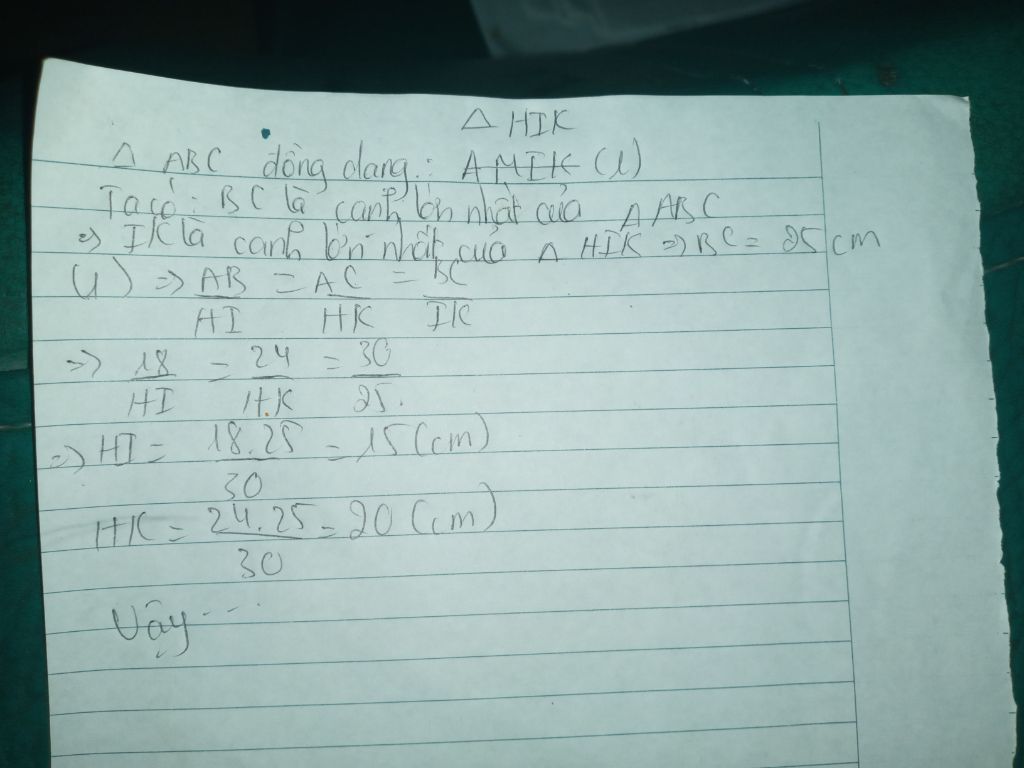 △ HIK
△ ABC đồng dạng : △ HIK (1)
Ta có : BC là cạnh lớn nhất của △ ABC
=> IK là cạnh lớn nhất của △ HIK => BC = 25 cm
(1) => AB/HI = AC/HK = BC/IK
=> 18/HI = 24/HK = 30/25.
=> HI = 18.25/30 = 15 (cm)
HK = 24.25/30 = 20 (cm)
Vậy ....